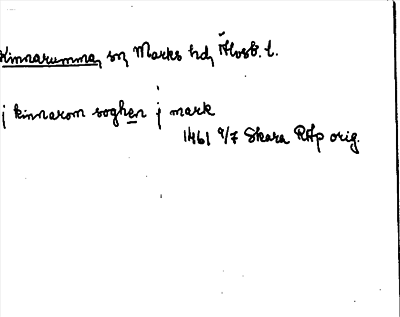 Kinnarumma, sn, Marks hd, Älvsb. l.
j kinnarom soghen j mark
1461 9/7 Skara RAp orig.